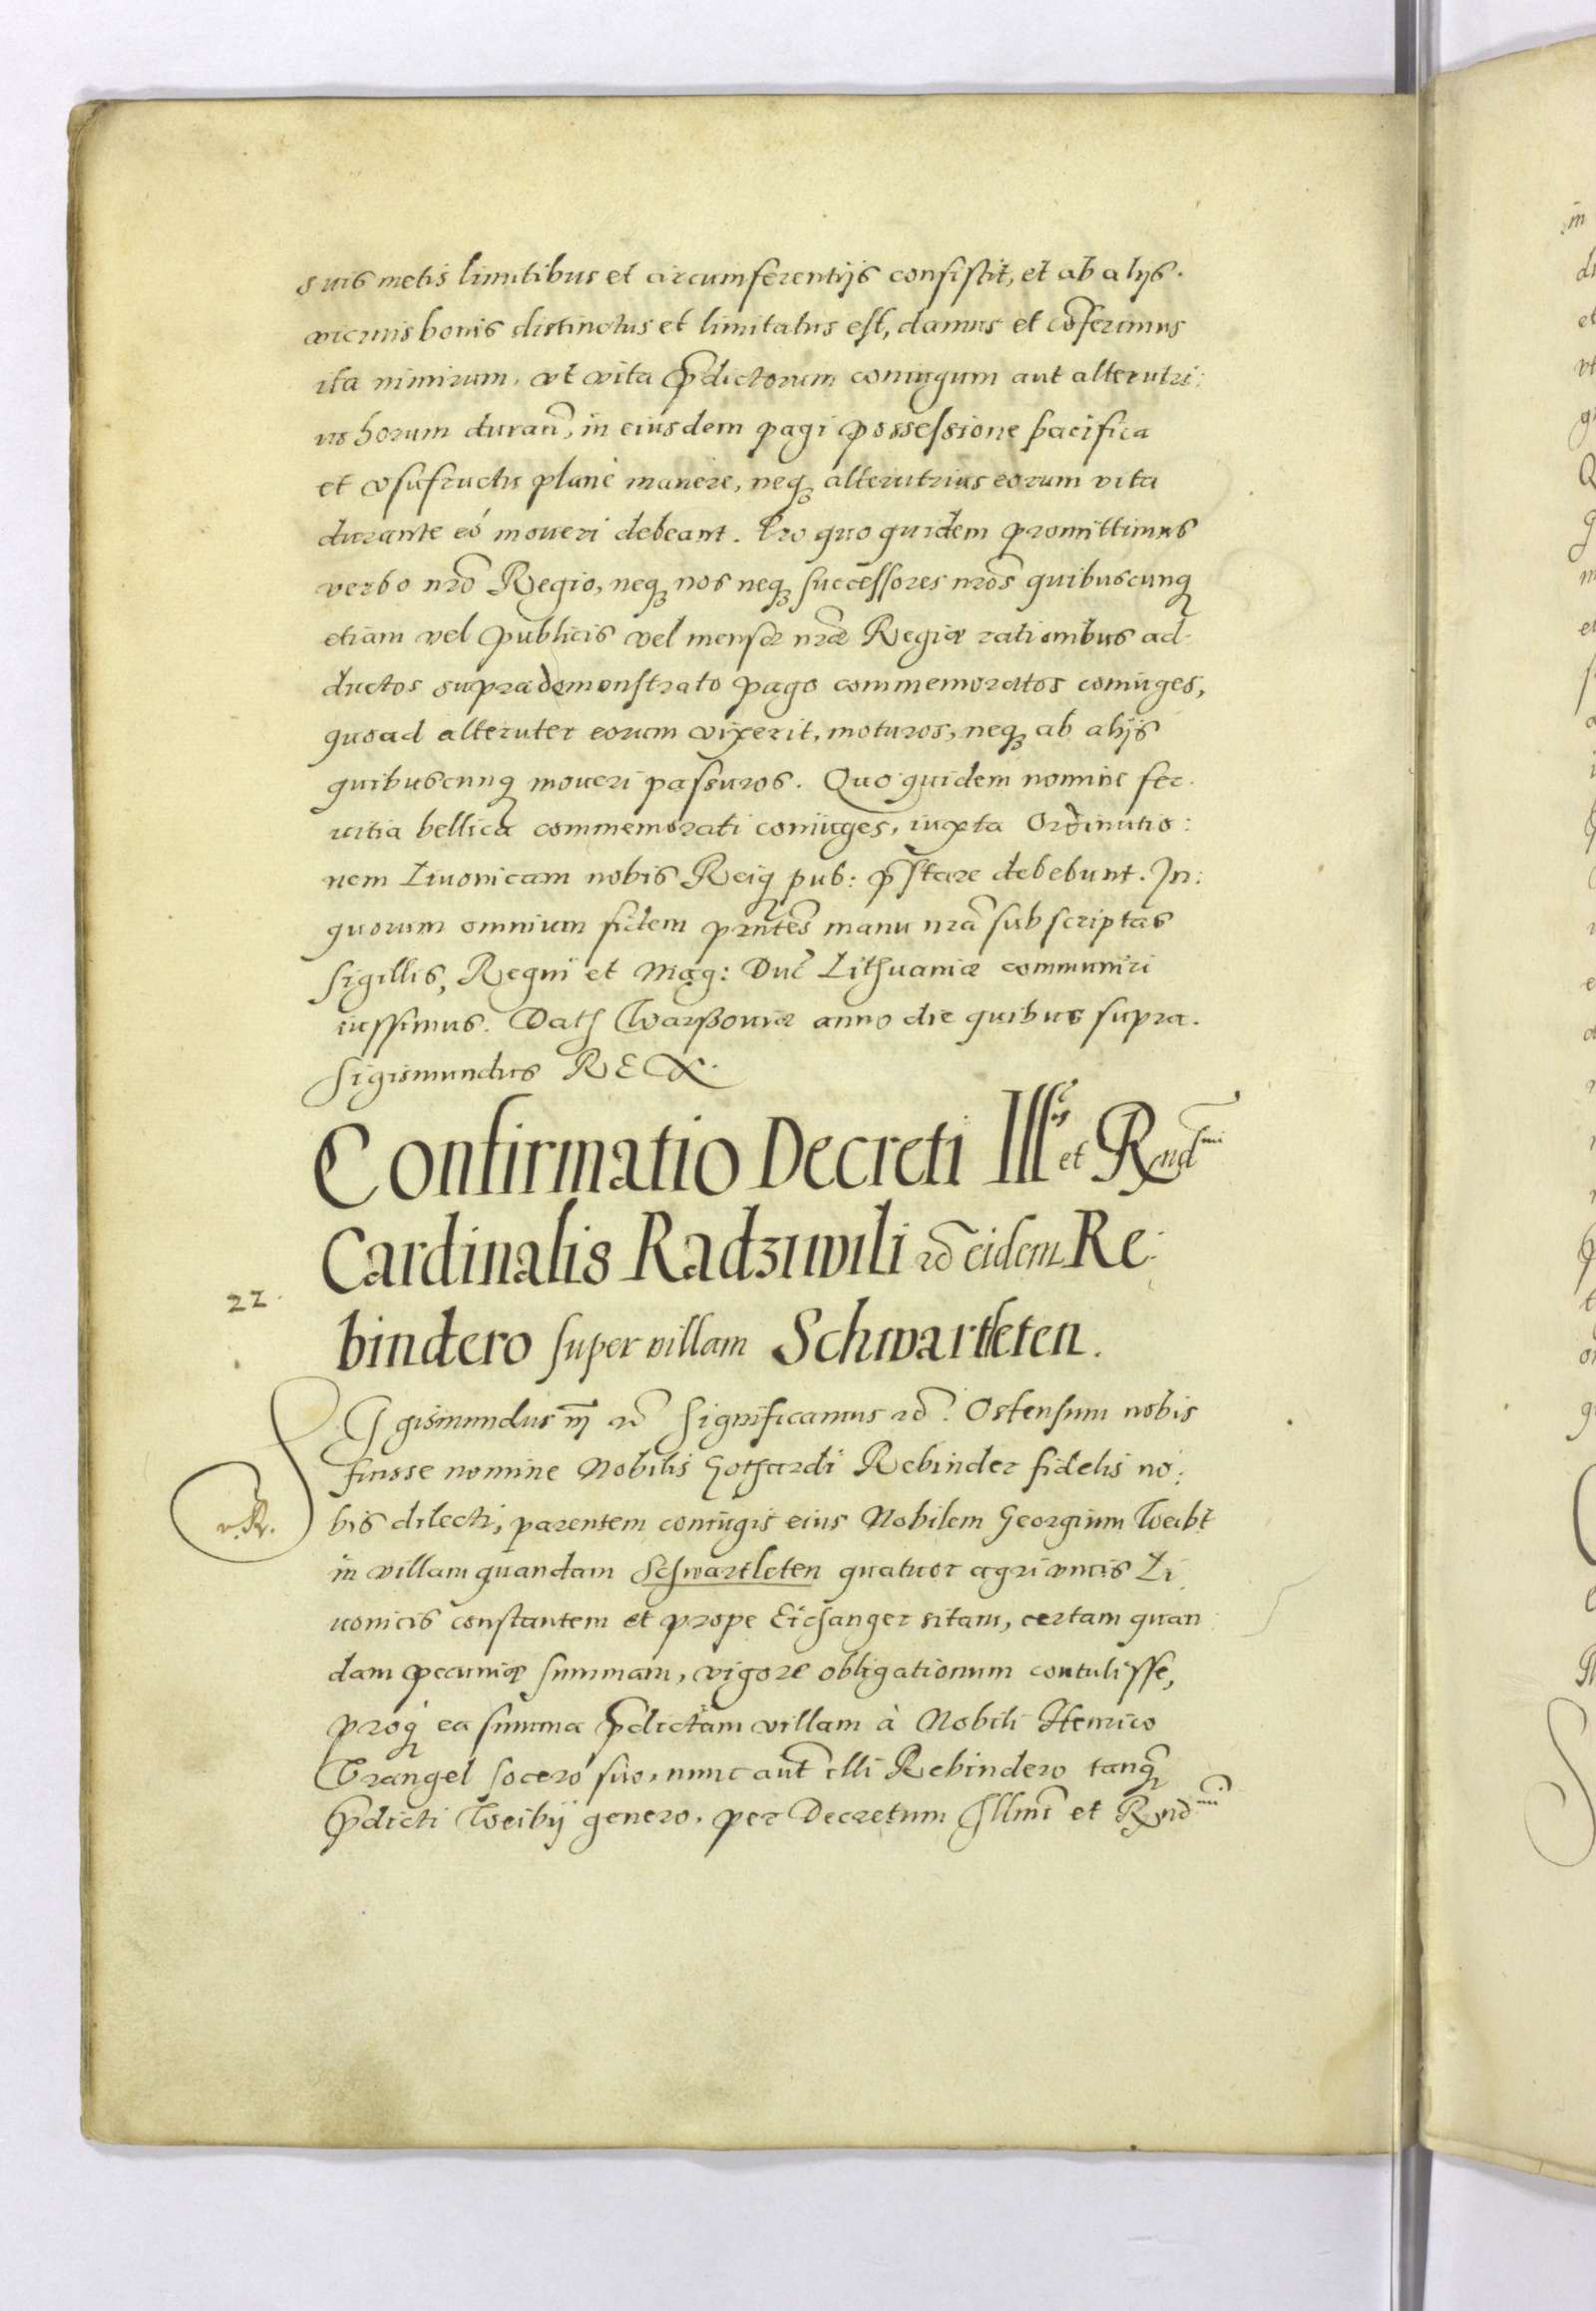 suis metis limitibus et circumferentijs consistit, et ab alijs.
vicinis bonis distinctus et limitatus est, damus et cōferimus
ita nimirum, vt vita p̄dictorum coniugum aut alterutri:
us horum duran̄, in eiusdem pagi possessione pacifica
et vsufructu planè manere, neq3 alterutrius eorum vita
durante eó moueri debeant. Pro quo quidem promittimus
verbo nr̄o Regio, neq3 nos neq3 successores nr̄os quibuscunq3
etiam vel publicis vel mensæ nr̄æ Regiæ rationibus ad-
ductos suprademonstrato pago commemoratos coniuges,
quoad alteruter eorum vixerit, moturos, neq3 ab alijs
quibuscunq3 moueri passuros. Quo quidem nomine ser-
uitia bellica commemorati coniuges, iuxta Ordinatio:
nem Liuonicam nobis Reiq3 pub: p̄stare debebunt. In:
quorum omnium fidem prn̄tes manu nr̄a subscriptas
sigillis, Regni et Mag: Duc̄ Lithuaniæ communiri
iussimus. Dat Warßouiæ anno die quibus supra.
Sigismundus REX.
Confirmatio Decreti Ill et Rndmi
Cardinalis Radziwili eidem Re-
22.
bindero super villam Schwartleten.
Sigismundus III Significamus. Ostensum nobis
fuisse nomine Nobilis Gothardi Rebinder fidelis no:
v. R.
bis dilecti, parentem coniugis eius Nobilem Georgium Weibt
in villam quandam Schwartleten quatuor agri vncis Li
uonicis constantem et prope Eichanger sitam, certam quan
dam pecuniæ summam, vigore obligationum contulisse,
proq3 ea summa p̄dictam villam à Nobili Henrico
Vrangel socero suo, nunc aut̄ illi Rebindero tanq3
p̄dicti Weibij genero, per Decretum Illmi et Rndmi